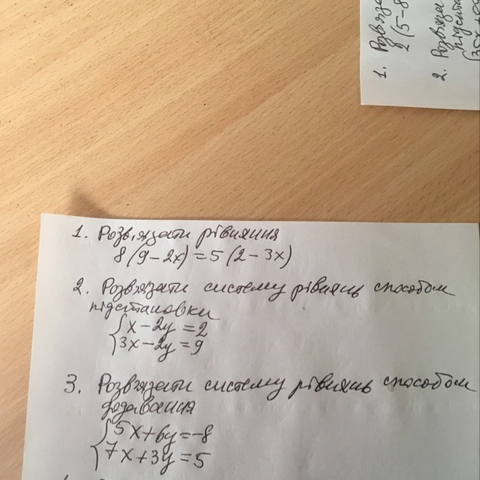 1. Розв'язати рівняння
8(9-2x)=5(2-3x)
2. Розв'язати систему рівнянь способом
підстановки
{x-2y=2
3x-2y=9
3. Розв'язати систему рівнянь способом
додавання
{5x+6y=-8
7x+3y=5
1. Розв'яза
2(5-8
2. Розв'яза
підстан